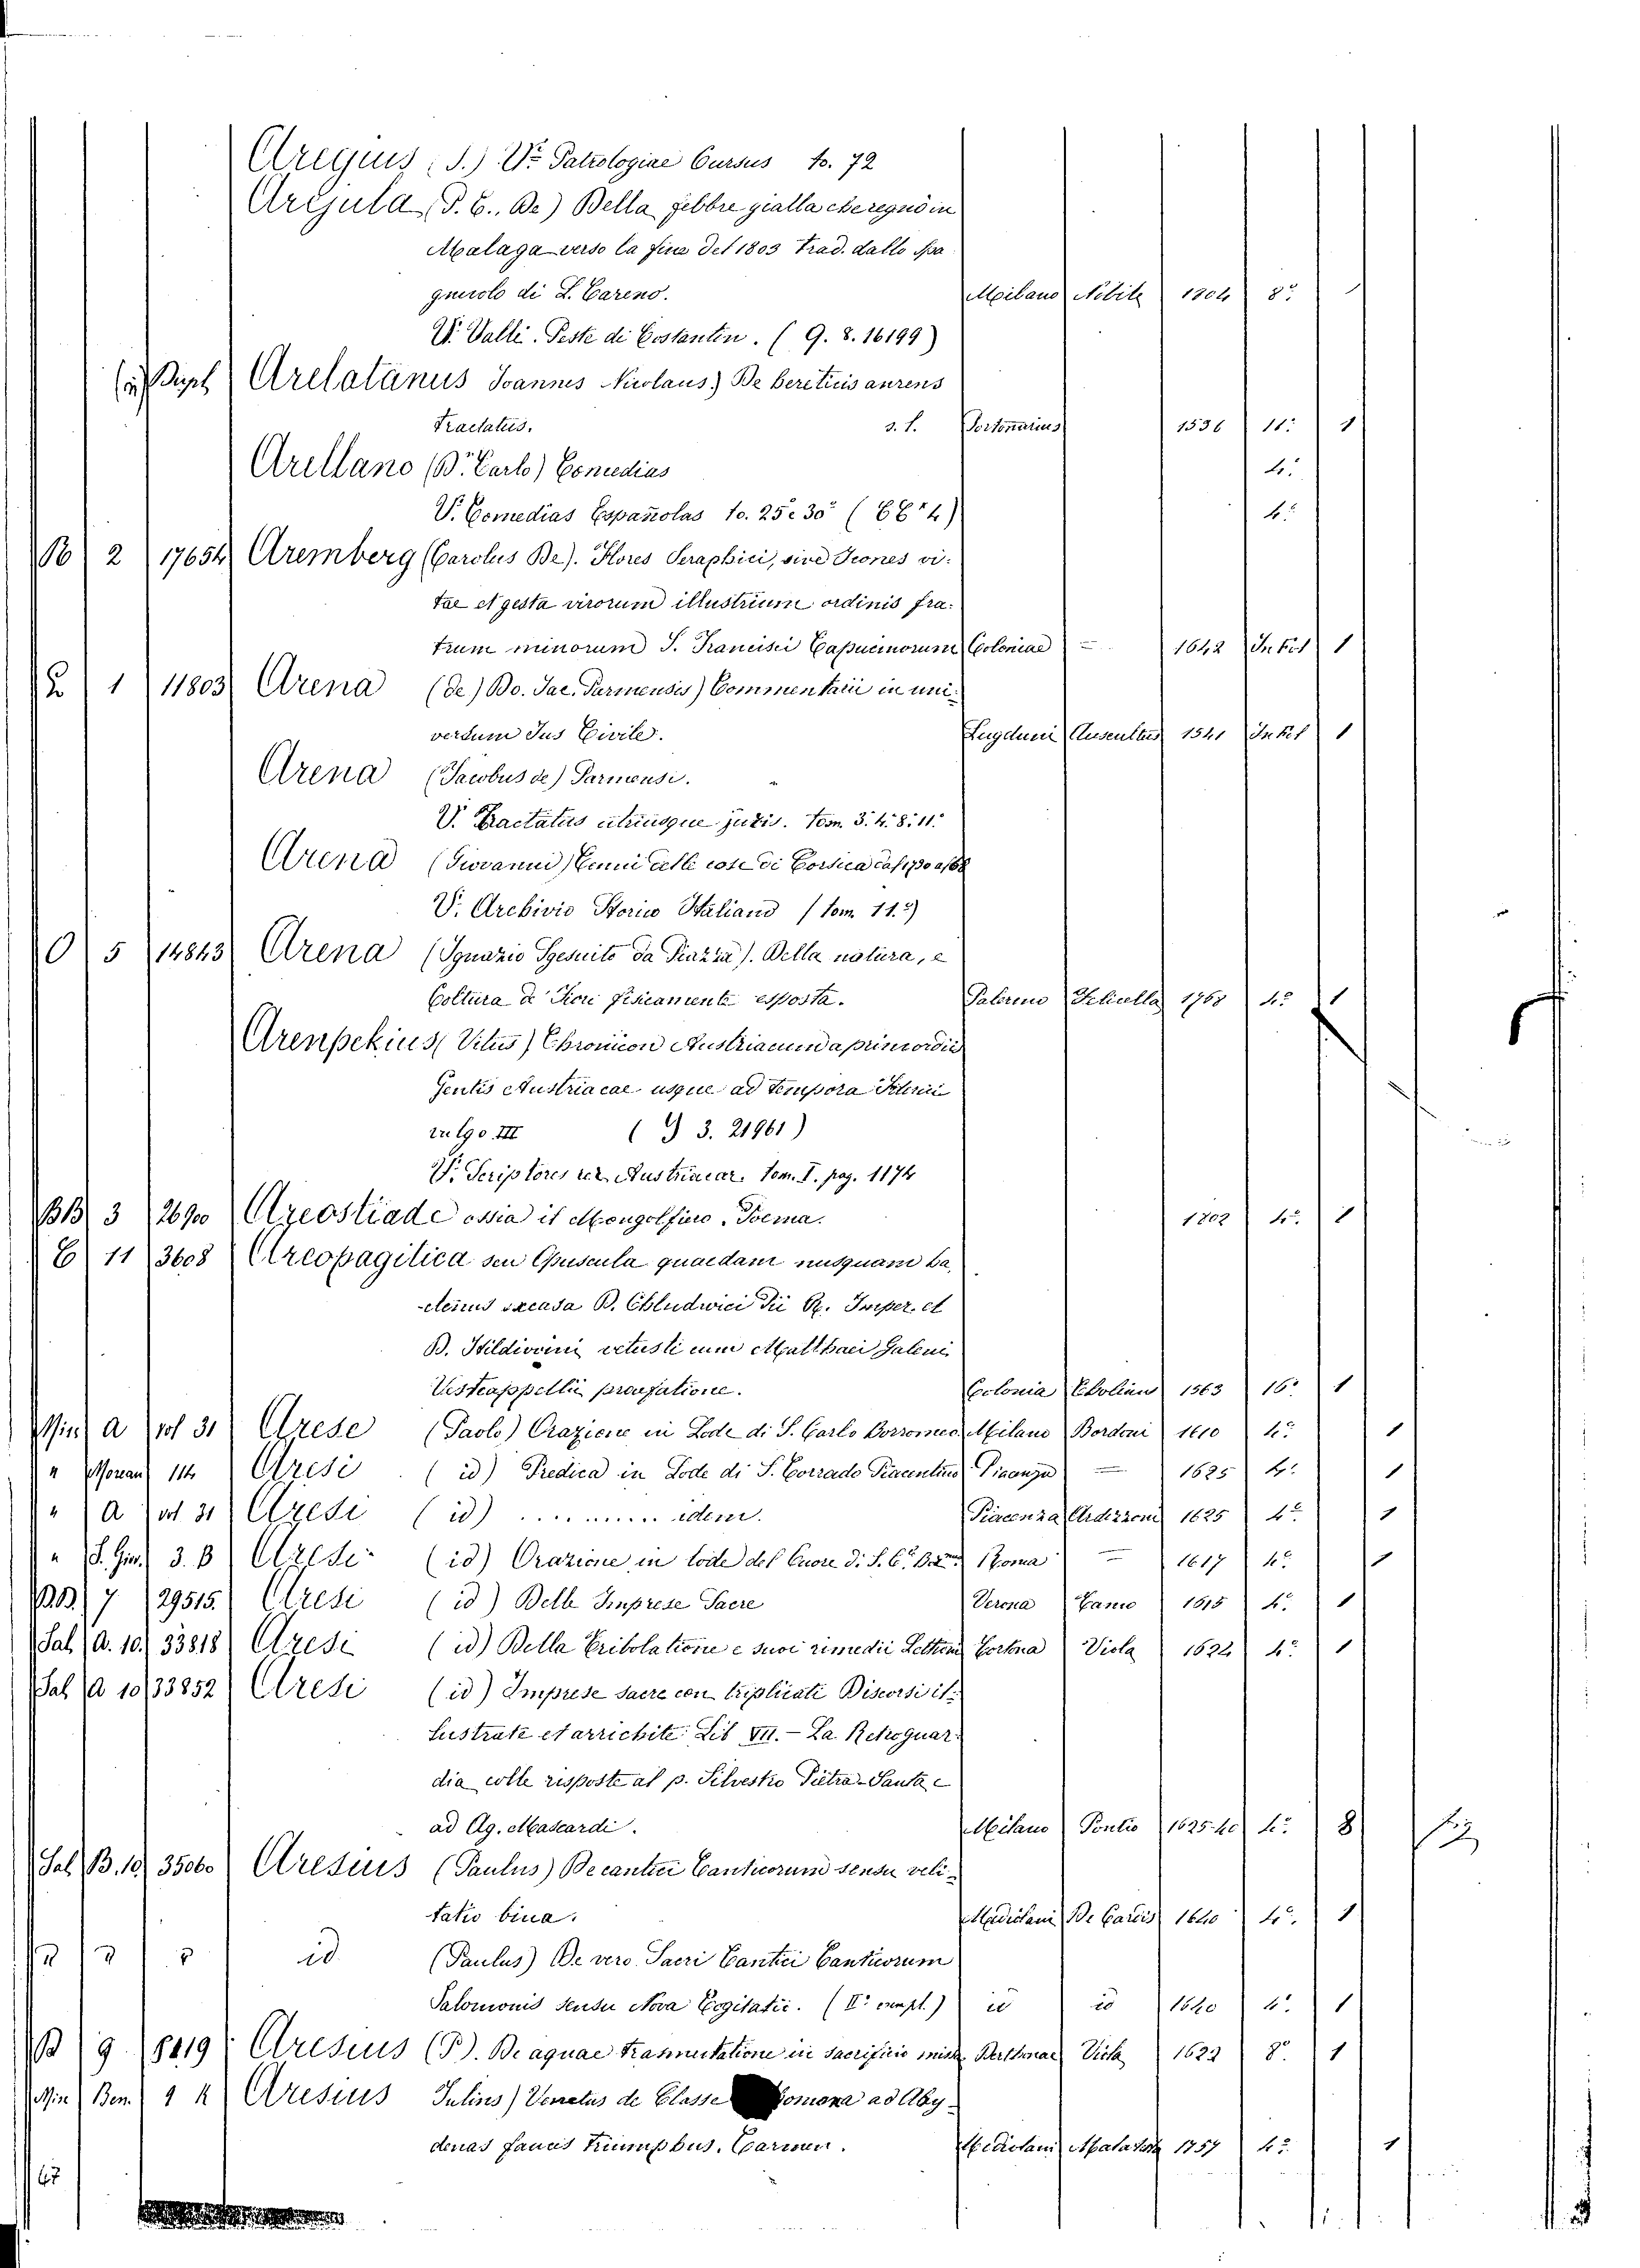 Aregius (S.) V. Patrologiae Cursus to. 72
Arejula (P. E., De) Della febbre gialla che regnò in
Malaga verso la fine del 1803 trad. dallo Spa
gnuolo di L. Careno. Milano Nobile 1804 8º 1
V. Valli. Peste di Costantin. ( G. 8. 16199)
Arelatanus Joannes Nicolaus) De bereticis aurens
Tractatus. s. l. Portonarius 1536 11: 1
Arellano (Dn. Carlo) Comedias 4º
V. Comedias Españolas to. 25 e 30 4º
B 2 17654 Aremberg (Carolus De). Flores Seraphici, sive Icones vi-
tae et gesta virorum illustrium ordinis fra-
trum minorum S. Francisci Capucinorum Coloniae = 1642 In fol 1
1 11803 Arena (de) Bo. Jac. Parmensis) Commentarii in uni-
versum Jus Civile. Lugduni Ausultus 1541 In fol 1
Arena (Jacobus de) Parmensi.
V. Tractatus utriusque juris. tom. 3. 4. 8. 11.
Arena (Giovanni)
V. Archivio Storico Italiano (tom. 11.º)
O 5 14843 Arena (Ignazio Gesuito da Piazza). Della natura, e
Coltura de Fiori fisicamente esposta. Palermo Felicella 1768 4º 1
Arenpekius (Vitus) Chronicon Austriacum a primordio
Gentis Austriacae usque ad tempora
III ( G 3. 21961)
V. Scriptores rer. Austriacar. tom. I. pag. 1174
BB 3 26900 Areostiade ossia il Mongolfiero, Poema. 1802 4º 1
E 11 3608 Areopagitica seu Opuscula quaedam nusquam ha
ctenus excusa D. Chludwici Pii R. Imper. et
B. Hildivoini vetusti cum Matthaei Galeni
Vestcappellii praefatione. Colonia Cholinus 1563 16º 1
Min A vol 31 Arese (Paolo) Orazione in Lode di S. Carlo Borromeo Milano Bordoni 1610 4º 1
" Moran 114 Aresi (id) Predica in Lode di S. Corrado Piacentino Piacenza = 1625 4º 1
" A vol 31 Aresi (id) .......... idem. Piacenza Ardizzoni 1625 4º 1
" 3. B Aresi (id) Orazione in lode del Cuore di S. C. Roma = 1617 4º 1
BB. 7 29515. Aresi (id) Delle Imprese Sacre Verona 1615 4º 1
Sal A. 10. 33818 Aresi (id) Della Tribolatione e suoi rimedii Tortona Viola 1624 4º 1
Sal A 10 33852 Aresi (id) Imprese sacre con triplicati Discorsi il-
lustrate et arrichite Lib VII. - La Retroguar-
dia colle risposte al p. Silvestro Pietra-Santa e
ad Ag. Mascardi. Milano Pontio 1625-40 4º 8
Sal B. 10. 35060 Aresius (Paulus) De cantici Canticorum sensu veli-
tatio bina. Mediolani De Cardis 1640 4º 1
id (Paulus) De vero Sacri Cantici Canticorum
Salomonis sensu Nova Cogitatio. (IIº empl.) id id 1640 4º 1
B 9 8419 Aresius (P). De aquae trasmutatione in sacrificio missae Derthonae Viola 1622 8º 1
Min Ben. Aresius Julius) Venetus de Classe ad Aby-
denas fauces triumphus, Carmen. Mediolani Malatesta 1757 4º 1